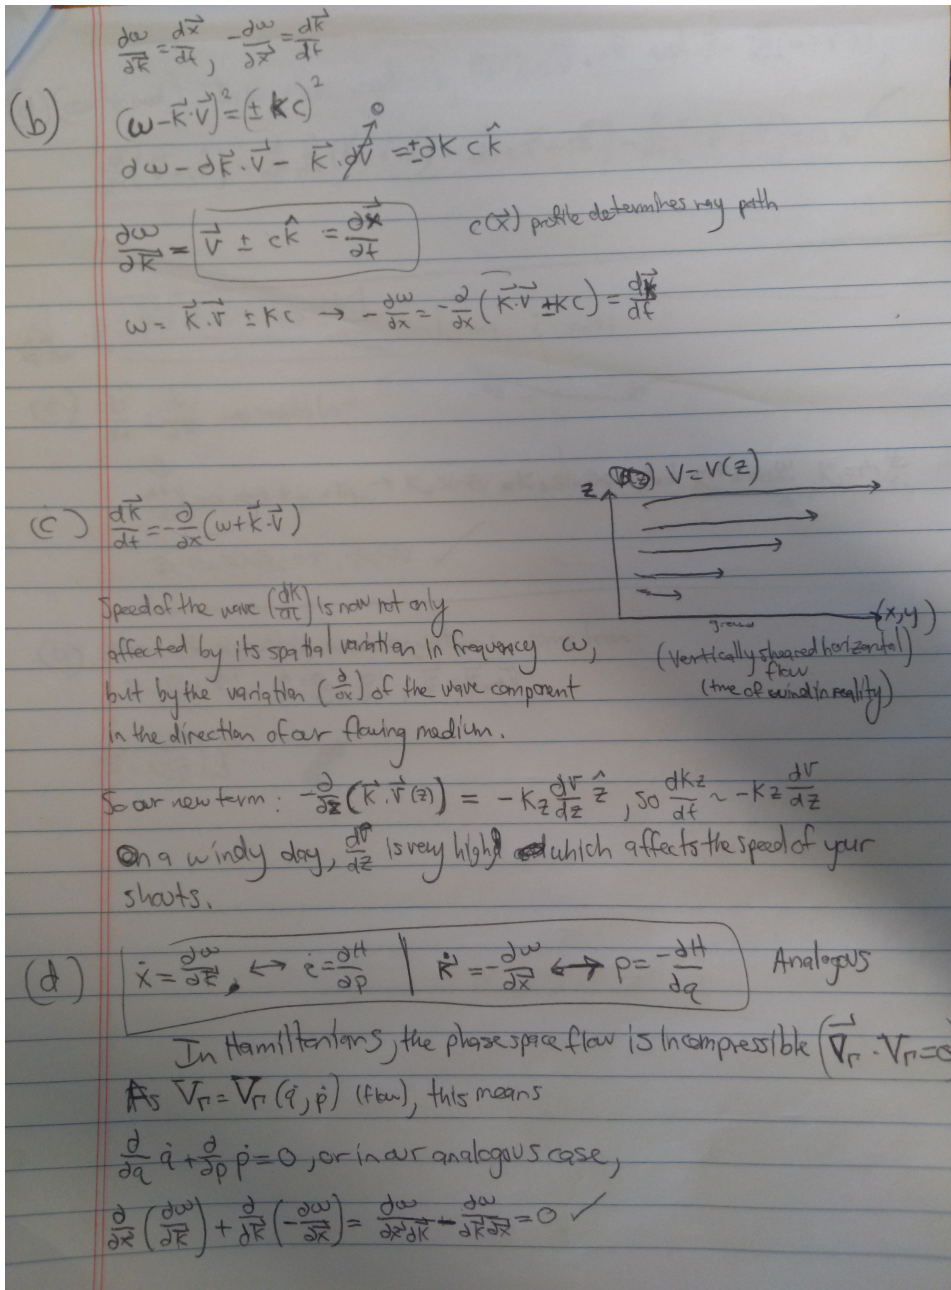 ∂ω/∂k⃗ = dx⃗/dt, -∂ω/∂x⃗ = dk⃗/dt
(b) (ω - k⃗·V⃗)² = (± kc)²
∂ω - ∂k⃗·V⃗ - k⃗·∂V⃗ = ±∂k c k̂
0
∂ω/∂k⃗ = V⃗ ± ck̂ = ∂x⃗/∂t
c(x⃗) profile determines ray path
ω = k⃗·V⃗ ± kc → -∂ω/∂x = -∂/∂x (k⃗·V⃗ ± kc) = dk⃗/dt
V = V(z)
z
(x,y)
ground
(vertically sheared horizontal)
flow
(true of wind in reality)
(c) dk⃗/dt = -∂/∂x (ω + k⃗·V⃗)
Speed of the wave (dk/dt) is now not only
affected by its spatial variation in frequency ω,
but by the variation (∂/∂x) of the wave component
in the direction of our flowing medium.
So our new term: -∂/∂z (k⃗·V⃗(z)) = -kz dV/dz ẑ, so dkz/dt ~ -kz dV/dz
On a windy day, dV/dz is very high which affects the speed of your
shouts.
(d) ẋ = ∂ω/∂k⃗, ↔ = ∂H/∂p | k⃗̇ = -∂ω/∂x⃗ ↔ p = -∂H/∂q Analogous
In Hamiltonians, the phase space flow is incompressible (∇⃗Γ·VΓ=0
As VΓ = VΓ(q̇, ṗ) (flow), this means
∂/∂q q̇ + ∂/∂p ṗ = 0, or in our analogous case,
∂/∂x⃗ (∂ω/∂k⃗) + ∂/∂k⃗ (-∂ω/∂x⃗) = ∂ω/∂x⃗∂k⃗ - ∂ω/∂k⃗∂x⃗ = 0 ✓